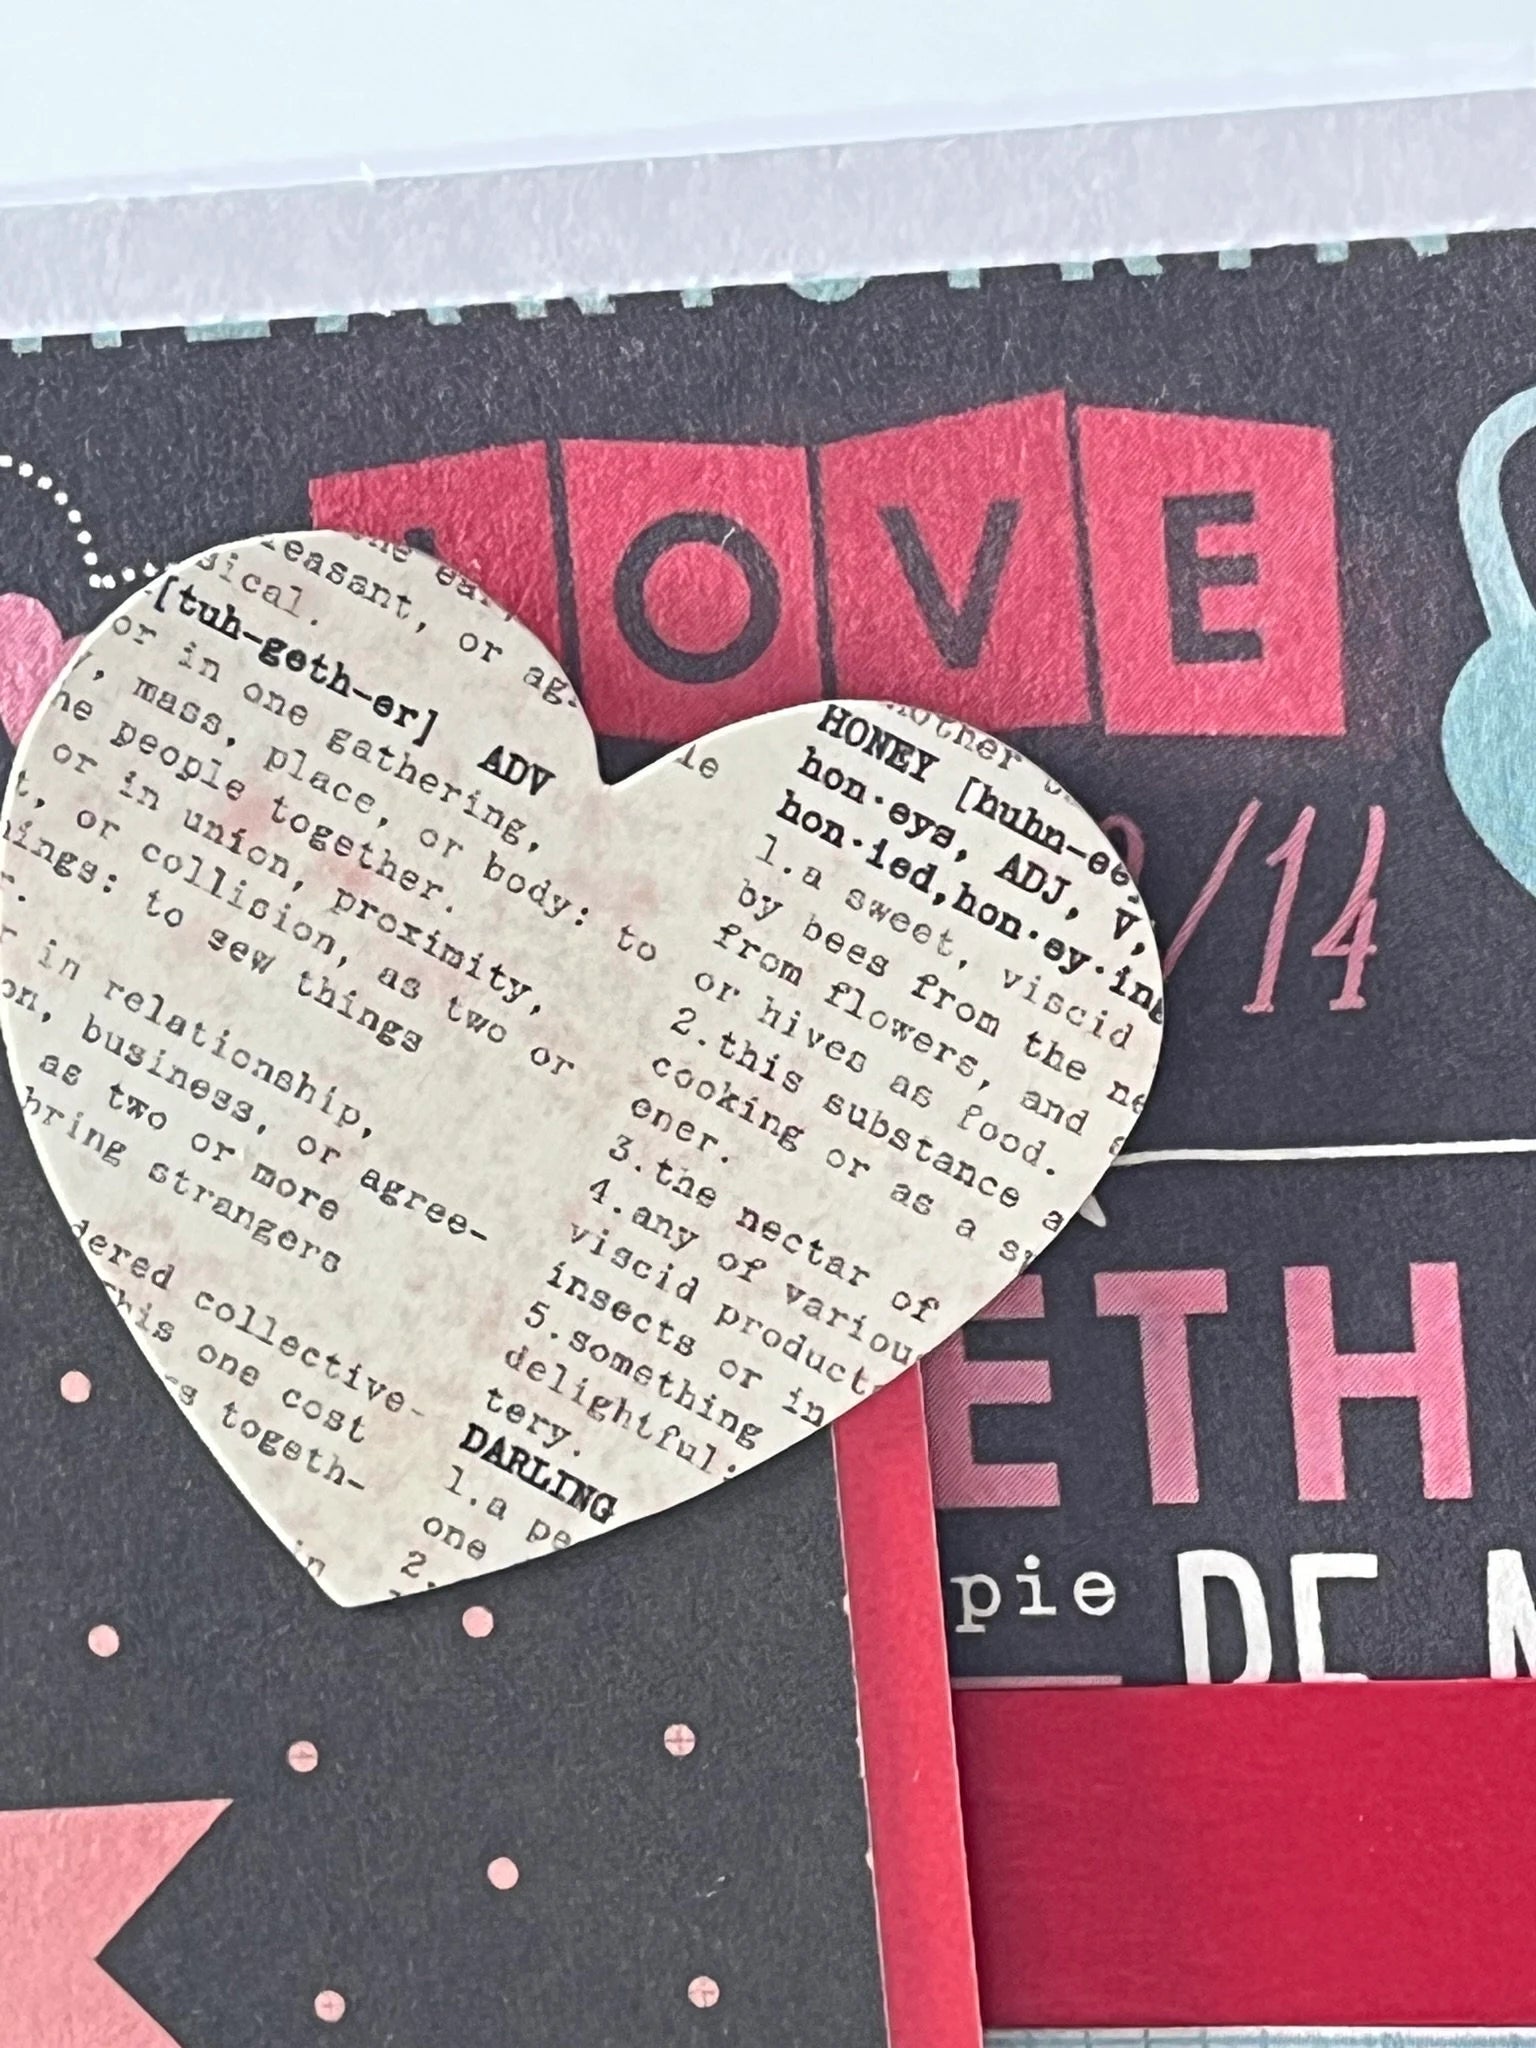 OVE
/14
ETH
pie
DE
or ag-
[tuh-geth-er] ADV
or in one gathering,
mass, place, or body: to
people together.
or in union, proximity,
or collision, as two or
to sew things
in relationship,
business, or agree-
as two or more
bring strangers
collective-
one cost
togeth-
in
HONEY [huhn-ee]
hon·eys, ADJ, V,
hon·ied,hon·ey·ing
1.a sweet, viscid
by bees from the
from flowers, and
or hives as food.
2.this substance
cooking or as a
ener.
3.the nectar of
4.any of variou
viscid product
insects or in
5.something
delightful:
tery.
DARLING
1.a pe
one
2.